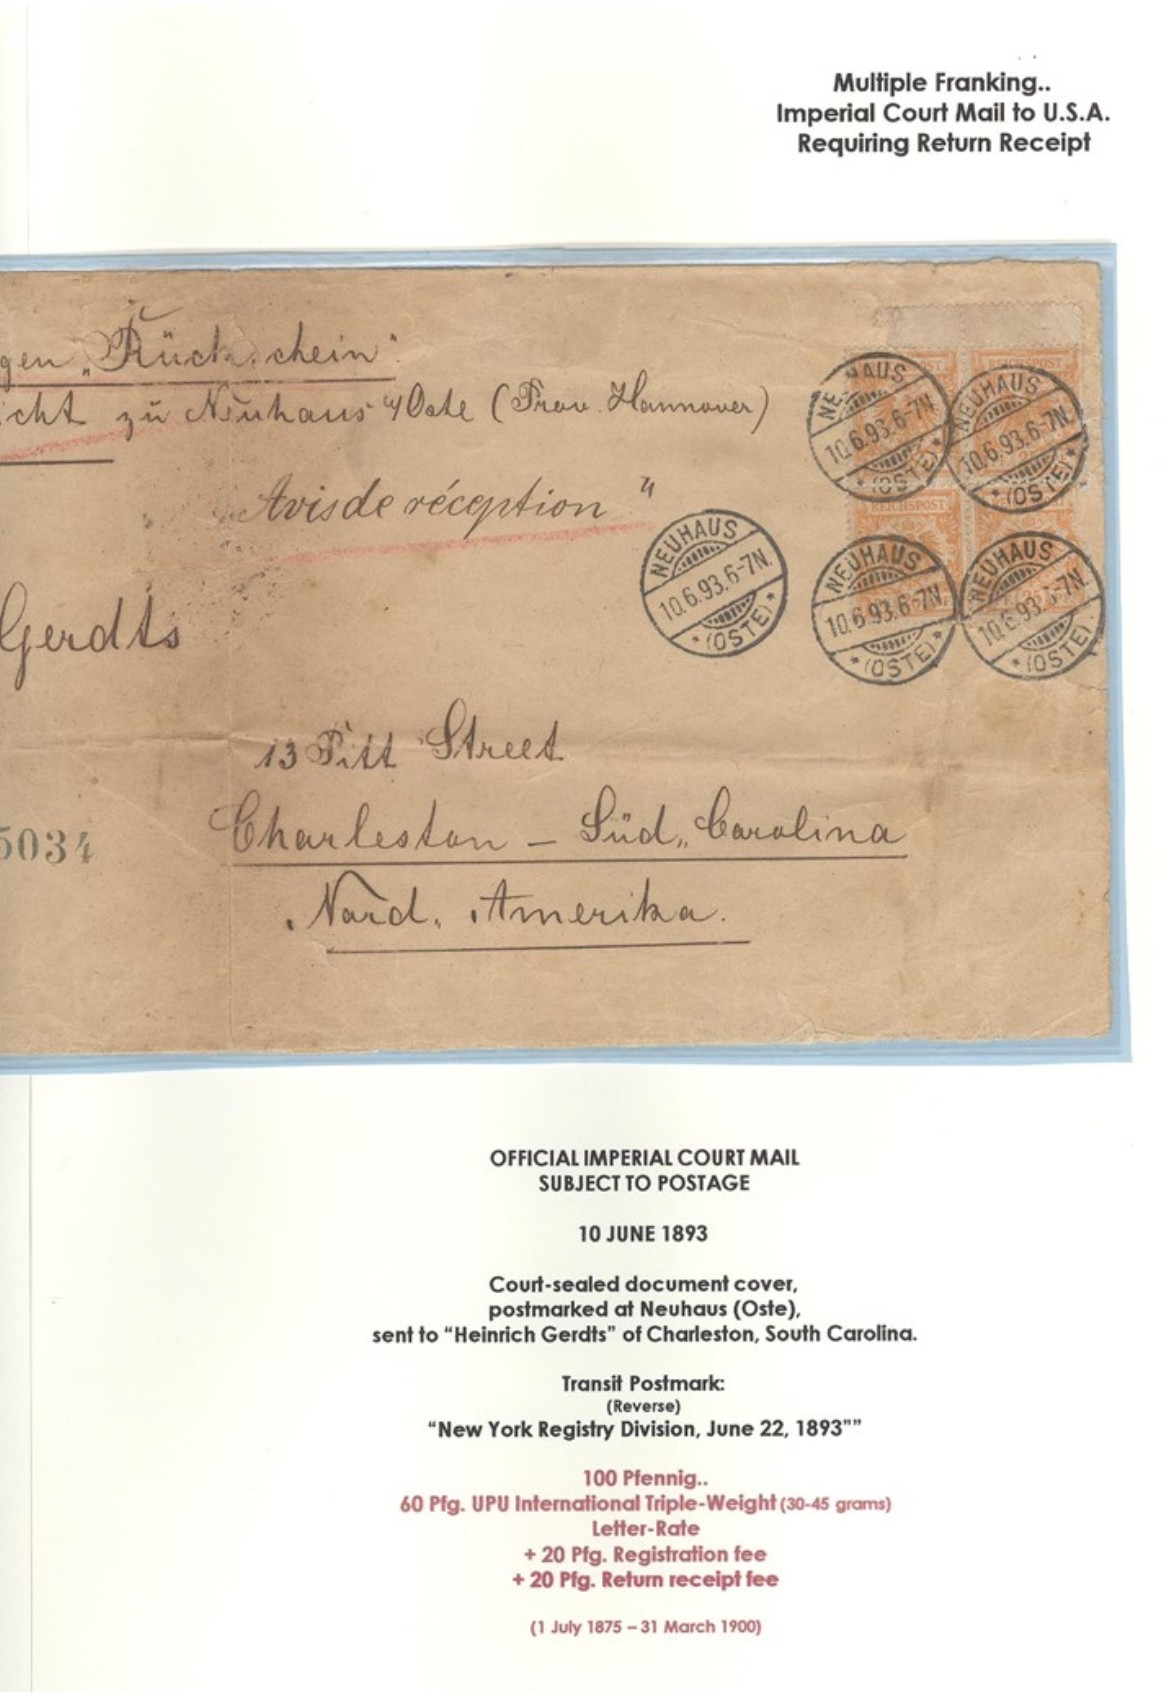 Multiple Franking..
Imperial Court Mail to U.S.A.
Requiring Return Receipt
gen „Rückschein“.
icht zu Neuhaus a/Oste (Prov. Hannover)
Avis de réception"
Gerdts
13 Pitt Street
Charleston – Süd„ Carolina
Nord. Amerika.
5034
REICHSPOST
REICHSPOST
NEUHAUS
10.6.93.6-7N.
*(OSTE)*
NEUHAUS
10.6.93.6-7N.
*(OSTE)*
NEUHAUS
10.6.93.6-7N.
*(OSTE)*
NEUHAUS
10.6.93.6-7N.
*(OSTE)*
NEUHAUS
10.6.93.6-7N.
*(OSTE)*
OFFICIAL IMPERIAL COURT MAIL
SUBJECT TO POSTAGE
10 JUNE 1893
Court-sealed document cover,
postmarked at Neuhaus (Oste),
sent to “Heinrich Gerdts” of Charleston, South Carolina.
Transit Postmark:
(Reverse)
“New York Registry Division, June 22, 1893””
100 Pfennig..
60 Pfg. UPU International Triple-Weight (30-45 grams)
Letter-Rate
+ 20 Pfg. Registration fee
+ 20 Pfg. Return receipt fee
(1 July 1875 – 31 March 1900)